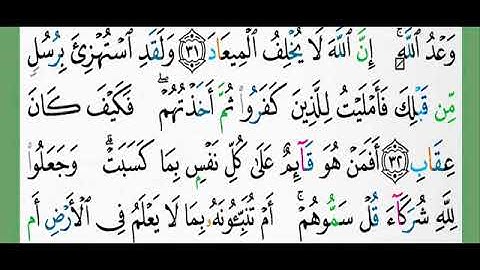 وَعْدُ اللَّهِ ۚ إِنَّ اللَّهَ لَا يُخْلِفُ الْمِيعَادَ ﴿٣١﴾ وَلَقَدِ اسْتُهْزِئَ بِرُسُلٍ
مِّن قَبْلِكَ فَأَمْلَيْتُ لِلَّذِينَ كَفَرُوا ثُمَّ أَخَذْتُهُمْ ۖ فَكَيْفَ كَانَ
عِقَابِ ﴿٣٢﴾ أَفَمَنْ هُوَ قَآئِمٌ عَلَىٰ كُلِّ نَفْسٍ بِمَا كَسَبَتْ ۗ وَجَعَلُوا
لِلَّهِ شُرَكَآءَ قُلْ سَمُّوهُمْ ۚ أَمْ تُنَبِّئُونَهُ بِمَا لَا يَعْلَمُ فِي الْأَرْضِ أَم